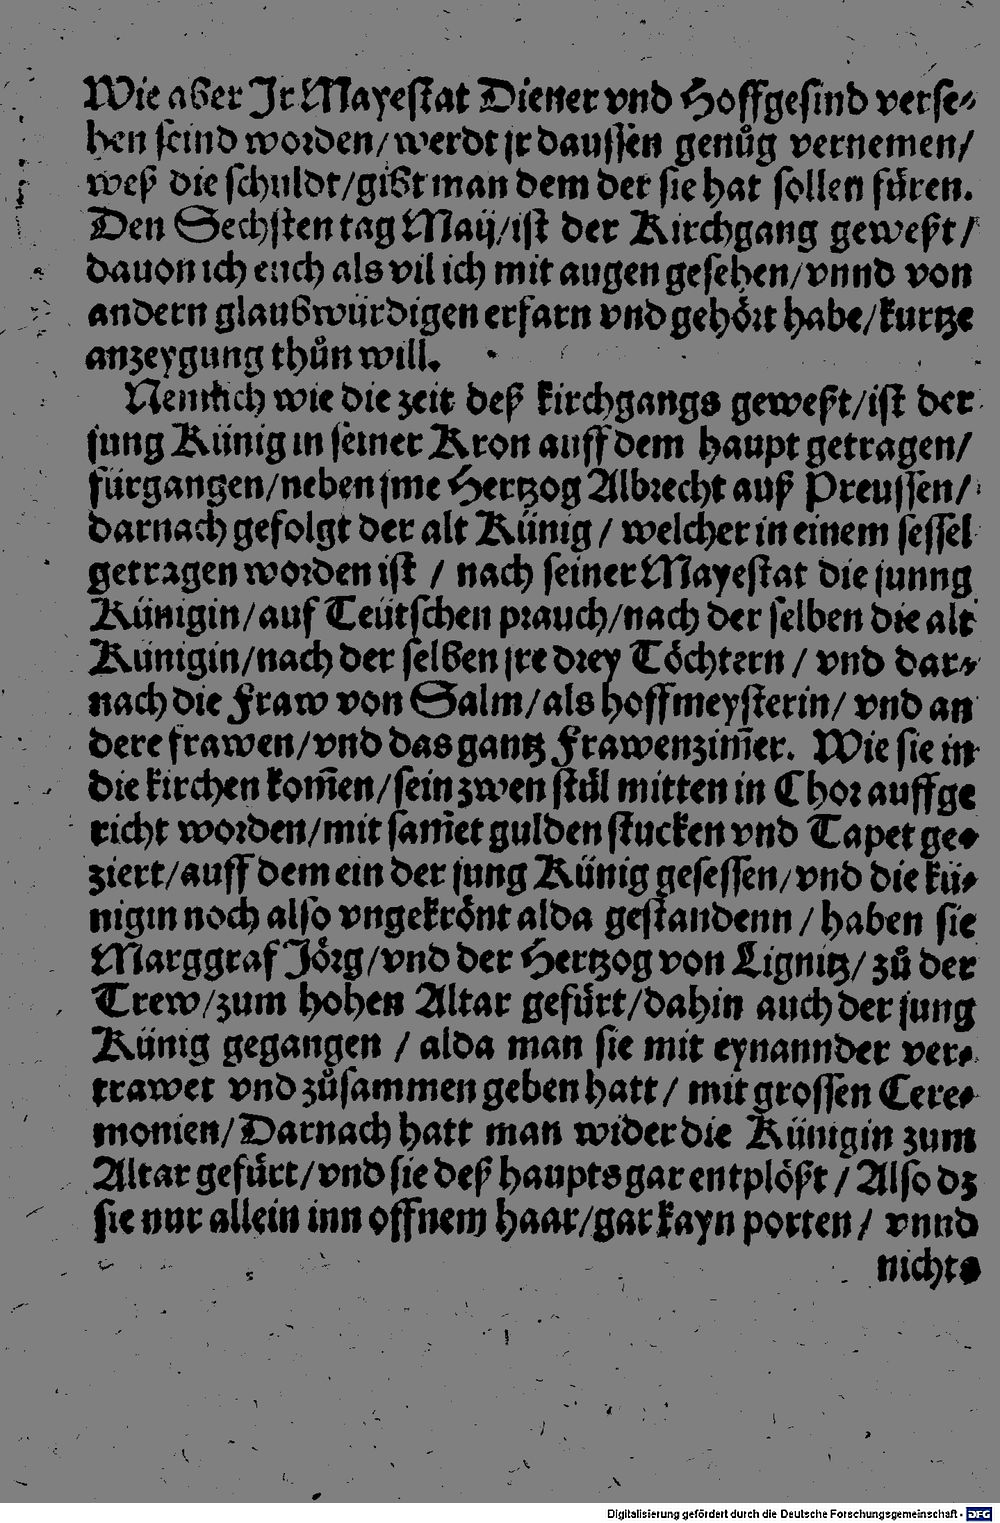 Wie aber Jr Mayestat Diener vnd Hoffgesind verse⸗
hen seind worden/werdt jr daussen genůg vernemen/
weß die schuldt/gibt man dem der sie hat sollen füren.
Den Sechsten tag Maij/ist der Kirchgang geweßt/
dauon ich euch als vil ich mit augen gesehen/vnnd von
andern glaubwürdigen erfarn vnd gehört habe/kurtze
anzeygung thůn will.
Nemlich wie die zeit deß kirchgangs geweßt/ist der
jung Künig in seiner Kron auff dem haupt getragen/
fürgangen/neben jme Hertzog Albrecht auß Preussen/
darnach gefolgt der alt Künig / welcher in einem sessel
getragen worden ist / nach seiner Mayestat die junng
Künigin/auf Teütschen prauch/nach der selben die alt
Künigin/nach der selben jre drey Töchtern / vnd dar⸗
nach die Fraw von Salm/als hoffmeysterin/ vnd an
dere frawen/vnd das gantz Frawenzim̃er. Wie sie in
die kirchen kom̃en/sein zwen stůl mitten in Chor auffge
richt worden/mit sam̃et gulden stucken vnd Tapet ge⸗
ziert/auff dem ein der jung Künig gesessen/vnd die kü⸗
nigin noch also vngekrönt alda gestandenn / haben sie
Marggraf Jörg/vnd der Hertzog von Lignitz/ zů der
Trew/zum hohen Altar gefürt/dahin auch der jung
Künig gegangen / alda man sie mit eynannder ver⸗
trawet vnd zůsammen geben hatt / mit grossen Cere⸗
monien/Darnach hatt man wider die Künigin zum
Altar gefürt/vnd sie deß haupts gar entplößt / Also dz
sie nur allein inn offnem haar/gar kayn porten / vnnd
nichts
Digitalisierung gefördert durch die Deutsche Forschungsgemeinschaft - DFG